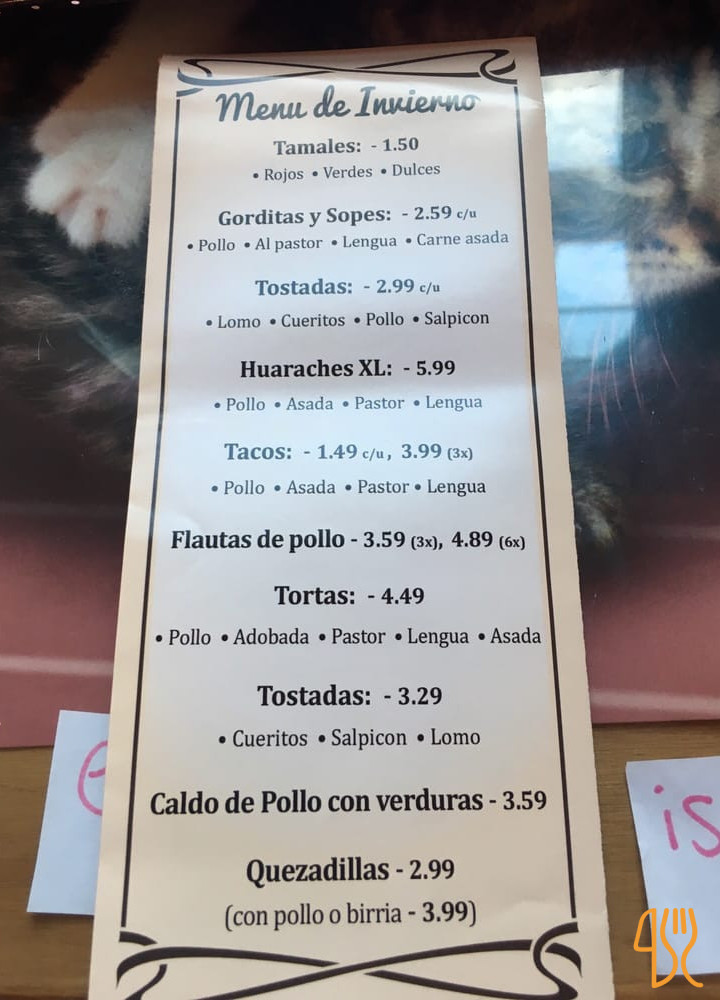 Menu de Invierno
Tamales: - 1.50
• Rojos • Verdes • Dulces
Gorditas y Sopes: - 2.59 c/u
• Pollo • Al pastor • Lengua • Carne asada
Tostadas: - 2.99 c/u
• Lomo • Cueritos • Pollo • Salpicon
Huaraches XL: - 5.99
• Pollo • Asada • Pastor • Lengua
Tacos: - 1.49 c/u, 3.99 (3x)
• Pollo • Asada • Pastor • Lengua
Flautas de pollo - 3.59 (3x), 4.89 (6x)
Tortas: - 4.49
• Pollo • Adobada • Pastor • Lengua • Asada
Tostadas: - 3.29
• Cueritos • Salpicon • Lomo
is
Caldo de Pollo con verduras - 3.59
Quezadillas - 2.99
(con pollo o birria - 3.99)